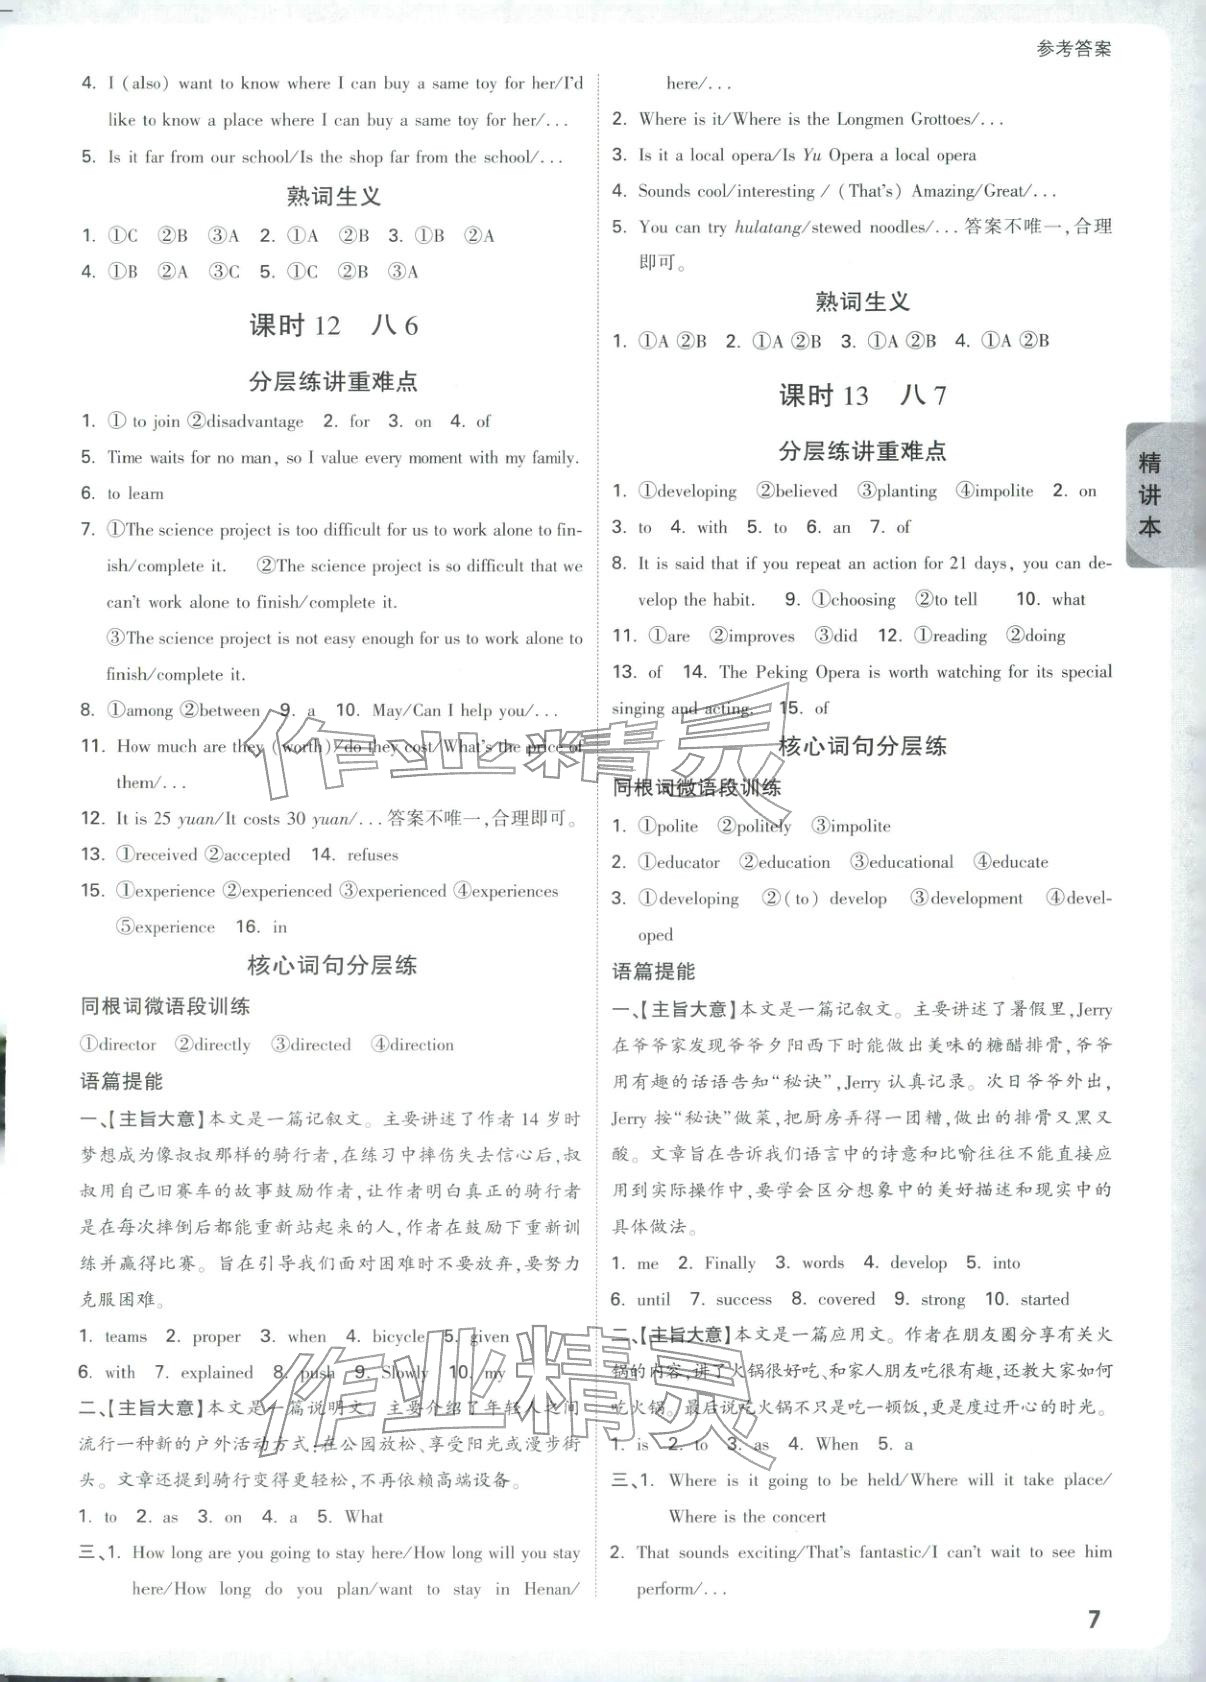 参考答案
4. I (also) want to know where I can buy a same toy for her/I'd
like to know a place where I can buy a same toy for her/...
5. Is it far from our school/Is the shop far from the school/...
熟词生义
1. ①C ②B ③A 2. ①A ②B 3. ①B ②A
4. ①B ②A ③C 5. ①C ②B ③A
课时 12 八 6
分层练讲重难点
1. ① to join ②disadvantage 2. for 3. on 4. of
5. Time waits for no man, so I value every moment with my family.
6. to learn
7. ①The science project is too difficult for us to work alone to fin-
ish/complete it. ②The science project is so difficult that we
can't work alone to finish/complete it.
③The science project is not easy enough for us to work alone to
finish/complete it.
8. ①among ②between 9. a 10. May/Can I help you/...
11. How much are they (worth)/do they cost/What's the price of
them/...
12. It is 25 yuan/It costs 30 yuan/...答案不唯一,合理即可。
13. ①received ②accepted 14. refuses
15. ①experience ②experienced ③experienced ④experiences
⑤experience 16. in
核心词句分层练
同根词微语段训练
①director ②directly ③directed ④direction
语篇提能
一、【主旨大意】本文是一篇记叙文。主要讲述了作者 14 岁时
梦想成为像叔叔那样的骑行者,在练习中摔伤失去信心后,叔
叔用自己旧赛车的故事鼓励作者,让作者明白真正的骑行者
是在每次摔倒后都能重新站起来的人,作者在鼓励下重新训
练并赢得比赛。旨在引导我们面对困难时不要放弃,要努力
克服困难。
1. teams 2. proper 3. when 4. bicycle 5. given
6. with 7. explained 8. push 9. Slowly 10. my
二、【主旨大意】本文是一篇说明文。主要介绍了年轻人之间
流行一种新的户外活动方式:在公园放松、享受阳光或漫步街
头。文章还提到骑行变得更轻松,不再依赖高端设备。
1. to 2. as 3. on 4. a 5. What
三、1. How long are you going to stay here/How long will you stay
here/How long do you plan/want to stay in Henan/
here/...
2. Where is it/Where is the Longmen Grottoes/...
3. Is it a local opera/Is Yu Opera a local opera
4. Sounds cool/interesting / (That's) Amazing/Great/...
5. You can try hulatang/stewed noodles/...答案不唯一,合理
即可。
熟词生义
1. ①A ②B 2. ①A ②B 3. ①A ②B 4. ①A ②B
课时 13 八 7
分层练讲重难点
1. ①developing ②believed ③planting ④impolite 2. on
3. to 4. with 5. to 6. an 7. of
8. It is said that if you repeat an action for 21 days, you can de-
velop the habit. 9. ①choosing ②to tell 10. what
11. ①are ②improves ③did 12. ①reading ②doing
13. of 14. The Peking Opera is worth watching for its special
singing and acting. 15. of
核心词句分层练
同根词微语段训练
1. ①polite ②politely ③impolite
2. ①educator ②education ③educational ④educate
3. ①developing ②(to) develop ③development ④devel-
oped
语篇提能
一、【主旨大意】本文是一篇记叙文。主要讲述了暑假里,Jerry
在爷爷家发现爷爷夕阳西下时能做出美味的糖醋排骨,爷爷
用有趣的话语告知“秘诀”,Jerry 认真记录。次日爷爷外出,
Jerry 按“秘诀”做菜,把厨房弄得一团糟,做出的排骨又黑又
酸。文章旨在告诉我们语言中的诗意和比喻往往不能直接应
用到实际操作中,要学会区分想象中的美好描述和现实中的
具体做法。
1. me 2. Finally 3. words 4. develop 5. into
6. until 7. success 8. covered 9. strong 10. started
二、【主旨大意】本文是一篇应用文。作者在朋友圈分享有关火
锅的内容,讲了火锅很好吃、和家人朋友吃很有趣,还教大家如何
吃火锅。最后说吃火锅不只是吃一顿饭,更是度过开心的时光。
1. is 2. to 3. as 4. When 5. a
三、1. Where is it going to be held/Where will it take place/
Where is the concert
2. That sounds exciting/That's fantastic/I can't wait to see him
perform/...
精讲本
作业精灵
作业精灵
7